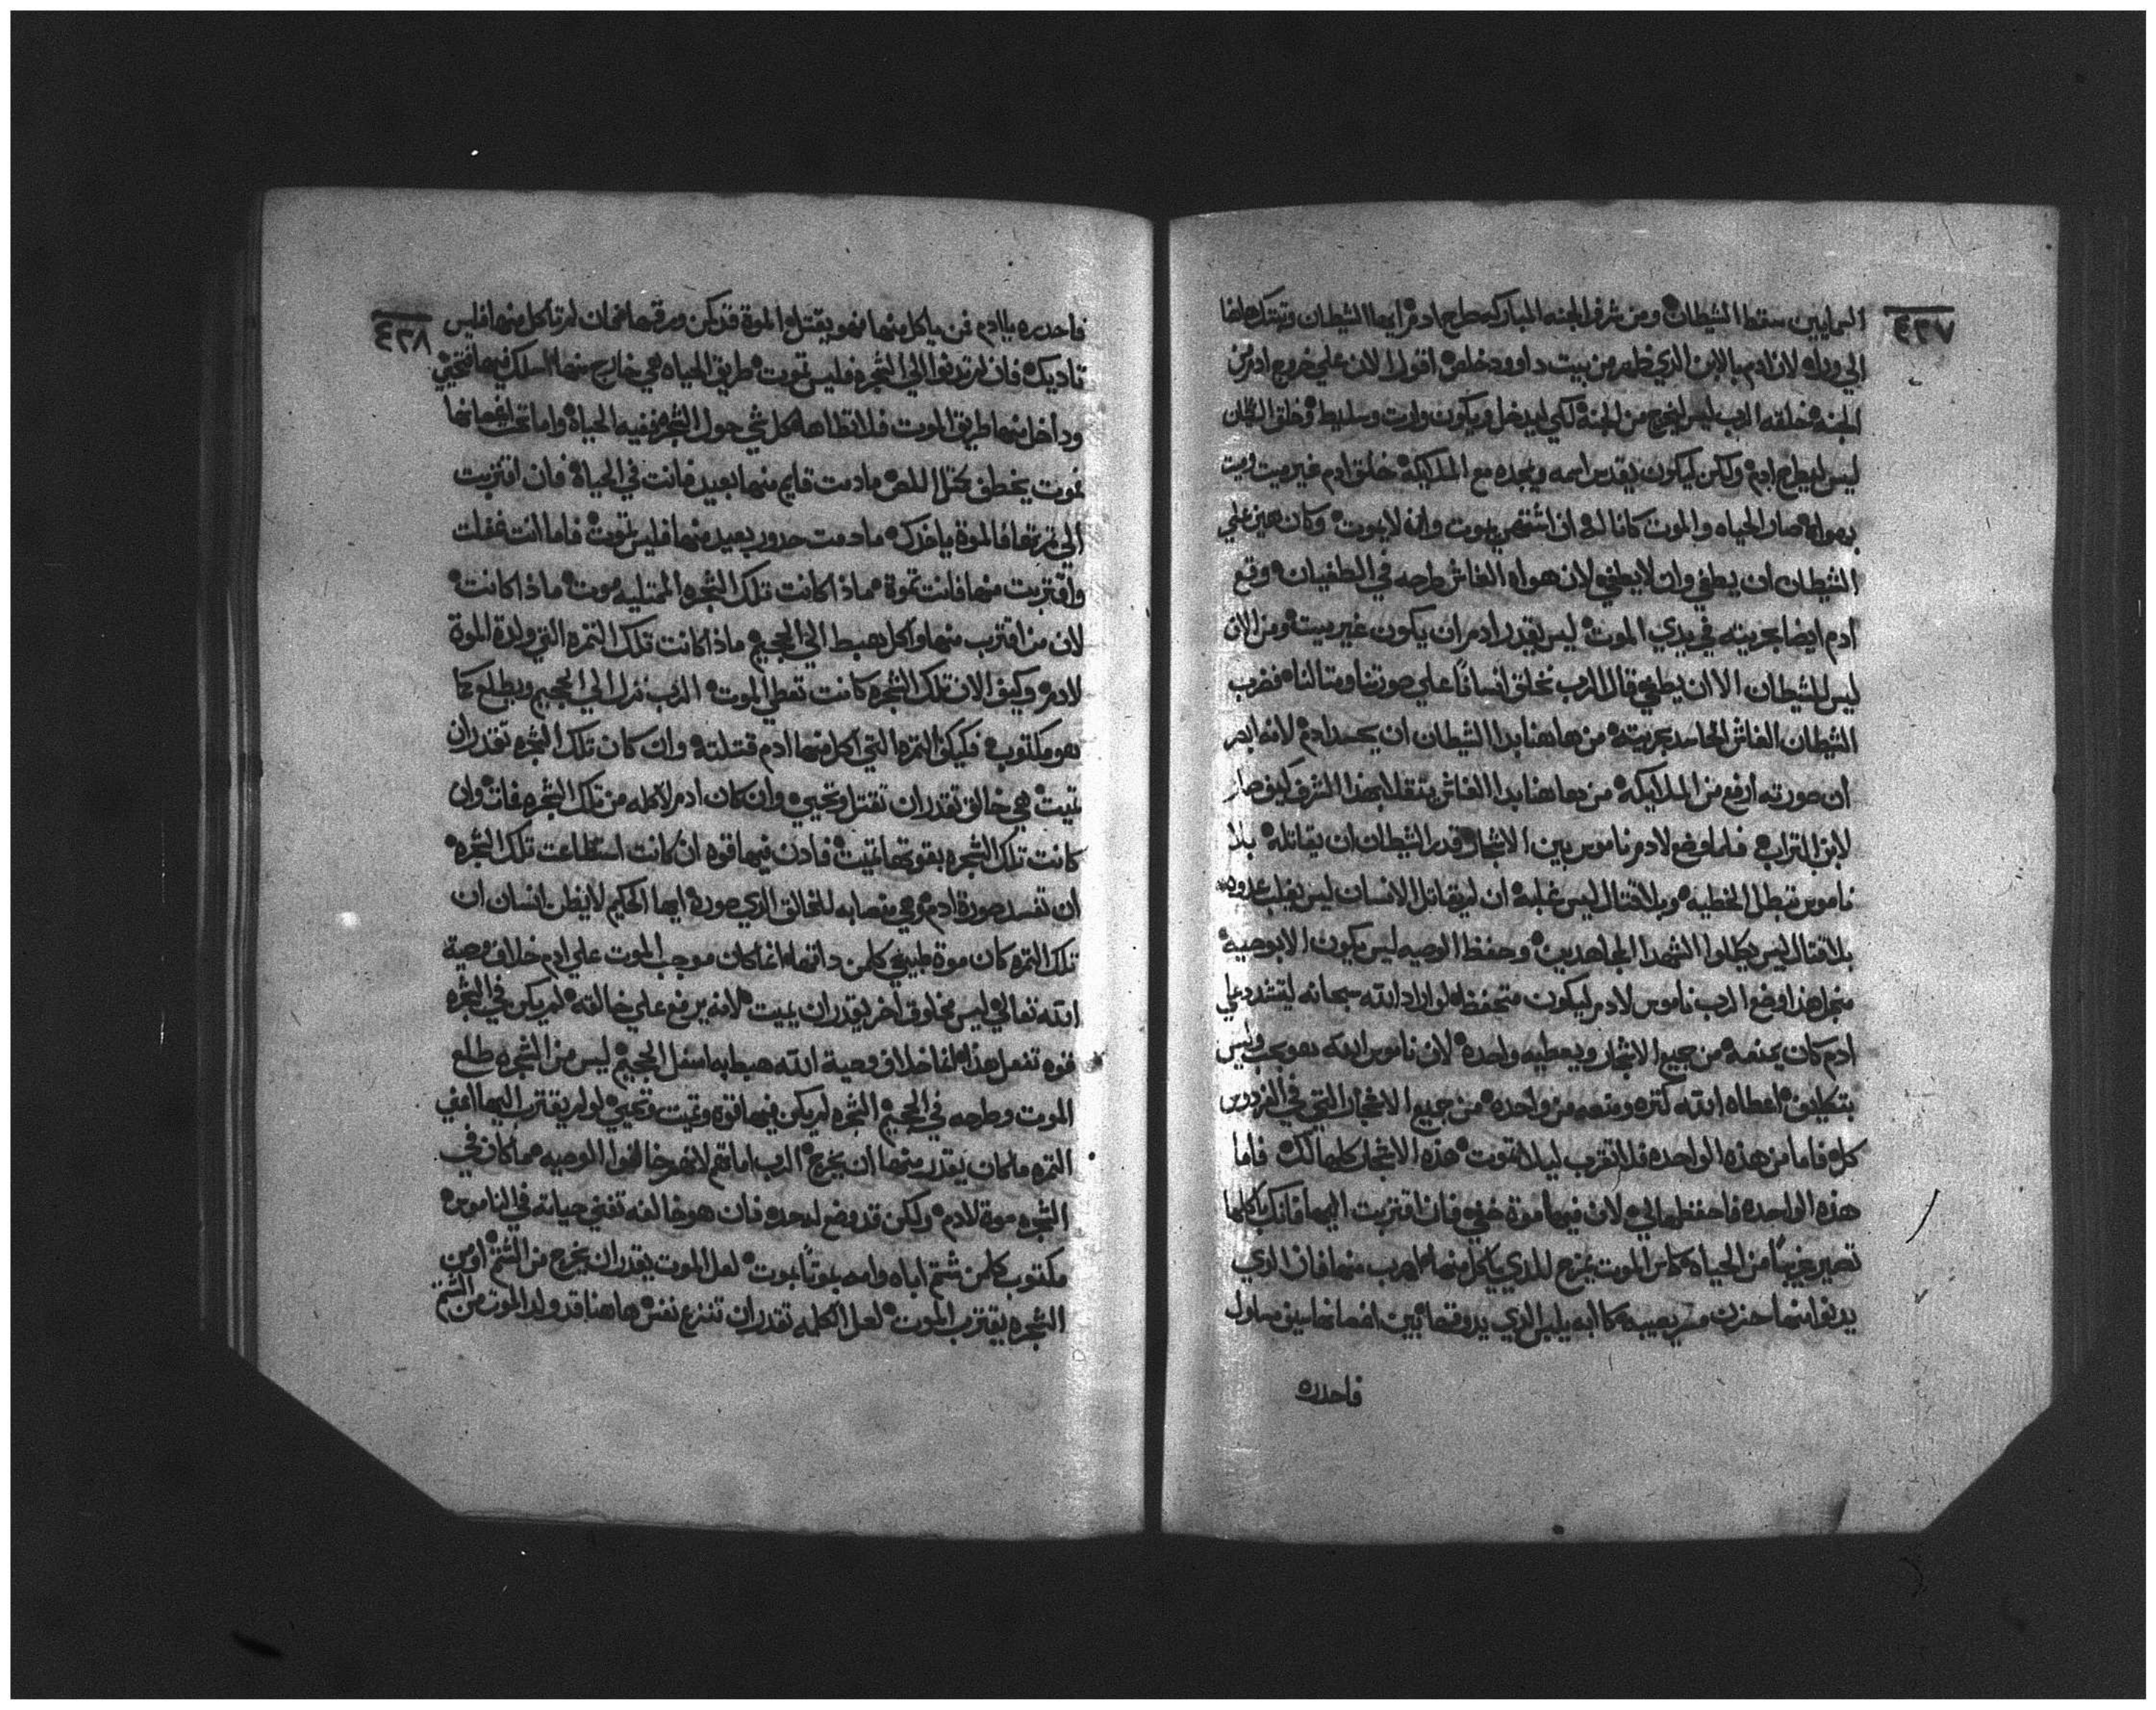 السمايين سقط الشيطان ومن شرف الجنه المباركه طرح ادم ايها الشيطان وتهتك هلفا
الي وراه لان ادم بالابن الذي ظهر من بيت داوود خلص اقول الان علي خروج ادم من
الجنه خلقه الرب ليس ليخرج من الجنه لكي ليدخل ويكون وارت وسليط وخلق الشيطان
ليس ليطرح ادم ولكن ليكون يقدس اسمه ويمجده مع الملايكة خلق ادم غير ميت وميت
بهواه صار الحياه والموت كانا له ان اشتهي يموت وان لا يموت وكان هين علي
الشيطان ان يطغي وان لا يطغي لان هواه الغاش طرحه في الطغيان وقع
ادم ايضا بحريته في يدي الموت ليس يقدر ادم ان يكون غير ميت ومن الان
ليس للشيطان الا ان يطغي قال الرب نخلق انسانا علي صورتنا ومتالنا فضرب
الشيطان الغاش الحاسد بحريته من هاهنا بدا الشيطان ان يحسد ادم لانه ابصر
ان صورته ارفع من الملايكه من هاهنا بدا الغاش يتقلا بهذا الشرف كيف صار
لابن التراب فلما وضع لادم ناموس بين الاشجار قدر الشيطان ان يقاتله بلا
ناموس تبطل الخطيه وبلا قتال ليس غلبه ان لم يقاتل الانسان ليس يغلب عدوه
بلا قتال ليس يكللوا الشهدا المجاهدين وحفظ الوصيه ليس يكون الا بوصيه
منجل هذا وضع الرب ناموس لادم ليكون متحفظ لو اراد الله سبحانه ليتشدد علي
ادم كان يمنعه من جميع الاشجار ويعطيه واحده لان ناموس الله هو بحب وليس
بتكليف اعطاه الله كتره ومنعه من واحده من جميع الاشجار التي في الفردوس
كل فاما من هذه الواحده فلا تقرب ليلا تموت هذه الاشجار كلها لك فاما
هذه الواحده فاحفظها لي لان فيها موة خفي فان اقتربت اليها فانك باكلها
تصير غريبا من الحياه كاس الموت يمزج للذي ياكل منها اهرب منها فان الذي
يدنوا منها حزن مصر يصيبه كابه يلبس الذي يدوقها بين اغصانها سيف مسلول
فاحدره
٤٣٧
فاحدره يا ادم فمن ياكل منها فهو يقتل الموة قد كمن ورقها فان لم تاكل منها فليس
تاديك فان لم تدنوا الي الشجره فليس تموت طريق الحياه هي خارج منها اسلك فيها فتحيي
وداخل منها طريق الموت فلا تطاها كل شي حول الشجره ففيه الحياه واما تحت اغصانها
فموت يخطف بختل اللص مادمت قايم منها بعيد فانت في الحياة فان اقتربت
الي تمرتها فالموة ياخدك مادمت حدور بعيد منها فليس تموت فاما انت غفلت
واقتربت منها فانت تموة ماذا كانت تلك الشجره الممتليه موت ماذا كانت
لان من اقترب منها واكل هبط الي الجحيم ماذا كانت تلك التمره التي ولدة الموة
لادم وكيف الان تلك الشجره كانت تعطي الموت الرب نزل الي الجحيم ويطلع كما
هو مكتوب فكيف التمره التي اكل منها ادم قتلته وان كان تلك الشجره تقدر ان
تميت هي خالق تقدر ان تقتل وتحيي وان كان ادم لاكله من تلك الشجره فات وان
كانت تلك الشجره بقوتها تميت فادن فيها قوه ان كانت استطاعت تلك الشجره
ان تفسد صورة ادم فهي متصابه للخالق الذي صوره ايها الحكيم لا يظن انسان ان
تلك التمره كان موة طبيعي كامن داتها انما كان موجب الموت علي ادم خلاف وصية
الله تعالي ليس مخلوق اخر يقدر ان يميت لانه يرفع علي خالقه لم يكن في الشجره
قوه تفعل هذا انما خلاف وصية الله هبط به اسفل الجحيم ليس من الشجره طلع
الموت وطرحه في الجحيم الشجره لم يكن فيها قوة وتميت وتحيي لو لم يقترب اليها اعني
التمره ما كان يقدر منها ان يخرج الرب اماتهم لانهم خالفوا الوصيه مما كان في
الشجره موة لادم ولكن قد وضع له حد فان هو خالفه تفني حياته في الناموس
مكتوب كلمن شتم اباه وامه بموتا يموت لعل الموت يقدر ان يخرج من الشتم او من
الشجره يقترب الموت لعل الكلمه تقدر ان تنزع نفس هاهنا قد ولد الموت من الشتم
٤٣٨